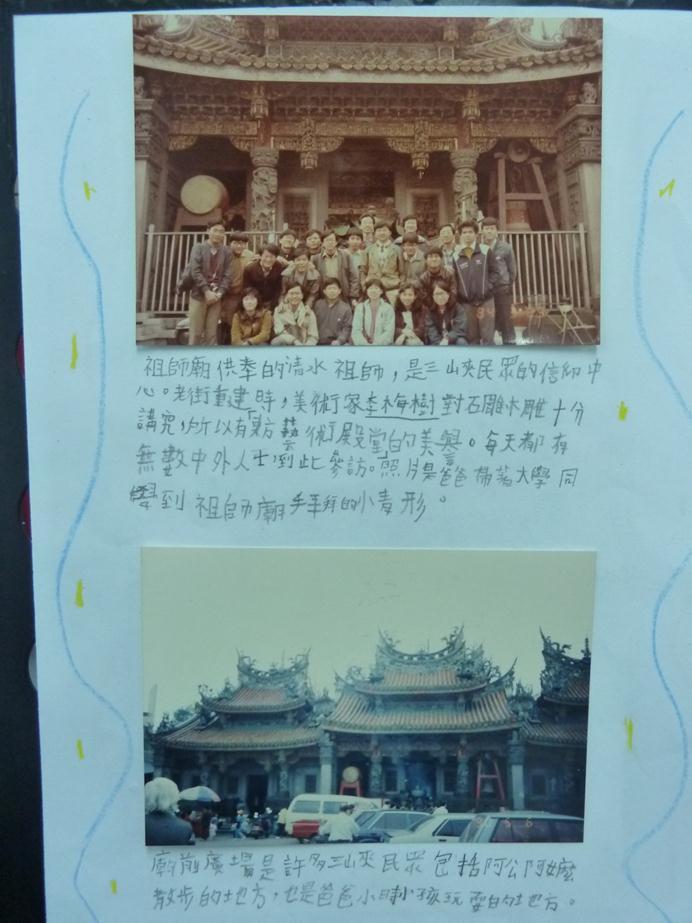 祖師廟供奉的清水祖師，是三山夾民眾的信仰中
心。老街重建時，美術家李梅樹對石雕木雕十分
講究，所以有「東方藝術殿堂」的美譽。每天都有
無數中外人士到此參訪。照片是爸爸帶著大學同
學到祖師廟手羊拜的小青形。
廟前廣場是許多三山夾民眾包括阿公阿嬤
散步的地方，也是爸爸小時小孩玩耍的地方。